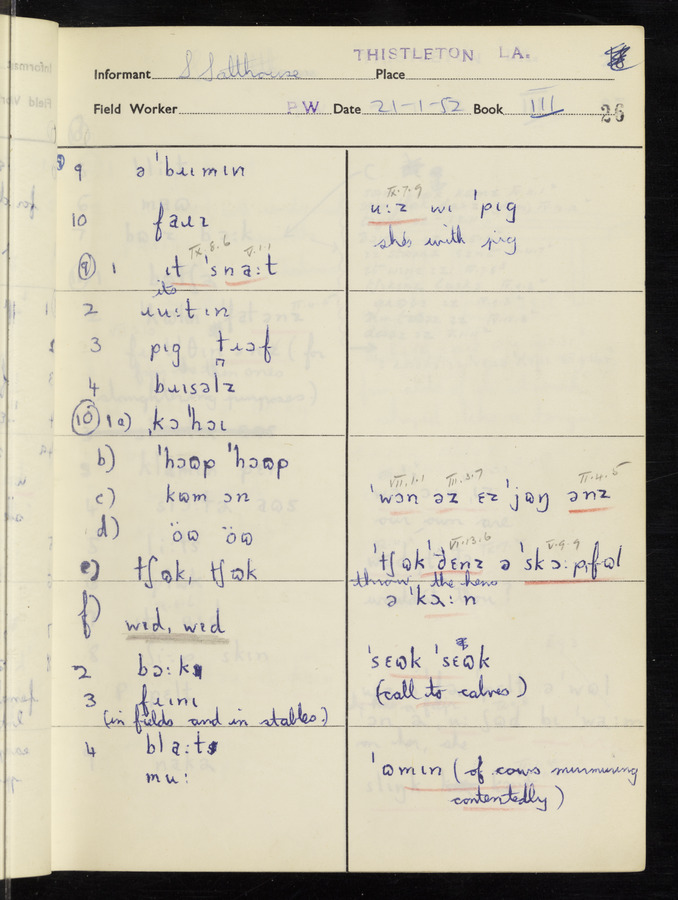 THISTLETON LA.
Informant S Salthouse Place
Field Worker PW Date 21-1-52 Book III 26
8 9 ə ˈbɹɪmɪn
10 faɹɪ
⑨ 1 ɪt ˈsnaːt
IX.8.6 V.1.1
its
2 ɹuːtɪn
3 pɪg tɹɔf
4 bɹɪsəlz
⑩ 1a) ˌkɔˈhɔɪ
b) ˈhɔʊp ˈhɔʊp
c) kʊm ɔn
d) öʊ öʊ
e) tʃʊk, tʃʊk
f)
wɛd, wɛd
2 bɔːk
3 ɹɪnɪ
(in fields and in stables)
4 blaːt
muː
IX.7.9
uːz wɪ ˈpɪg
she's with pig
VII.1.1 III.3.7 II.4.5
ˈwɔn əz ɛz ˈjʊŋ ənz
VI.13.6 V.9.9
ˈtʃʊk ˈðɛnz ə ˈskɔːpfʊl
throw the hens
ə ˈkɔːn
ˈsɛʊk ˈsɛʊk
(call to calves)
ˈʊmɪn (of cows murmuring
contentedly)